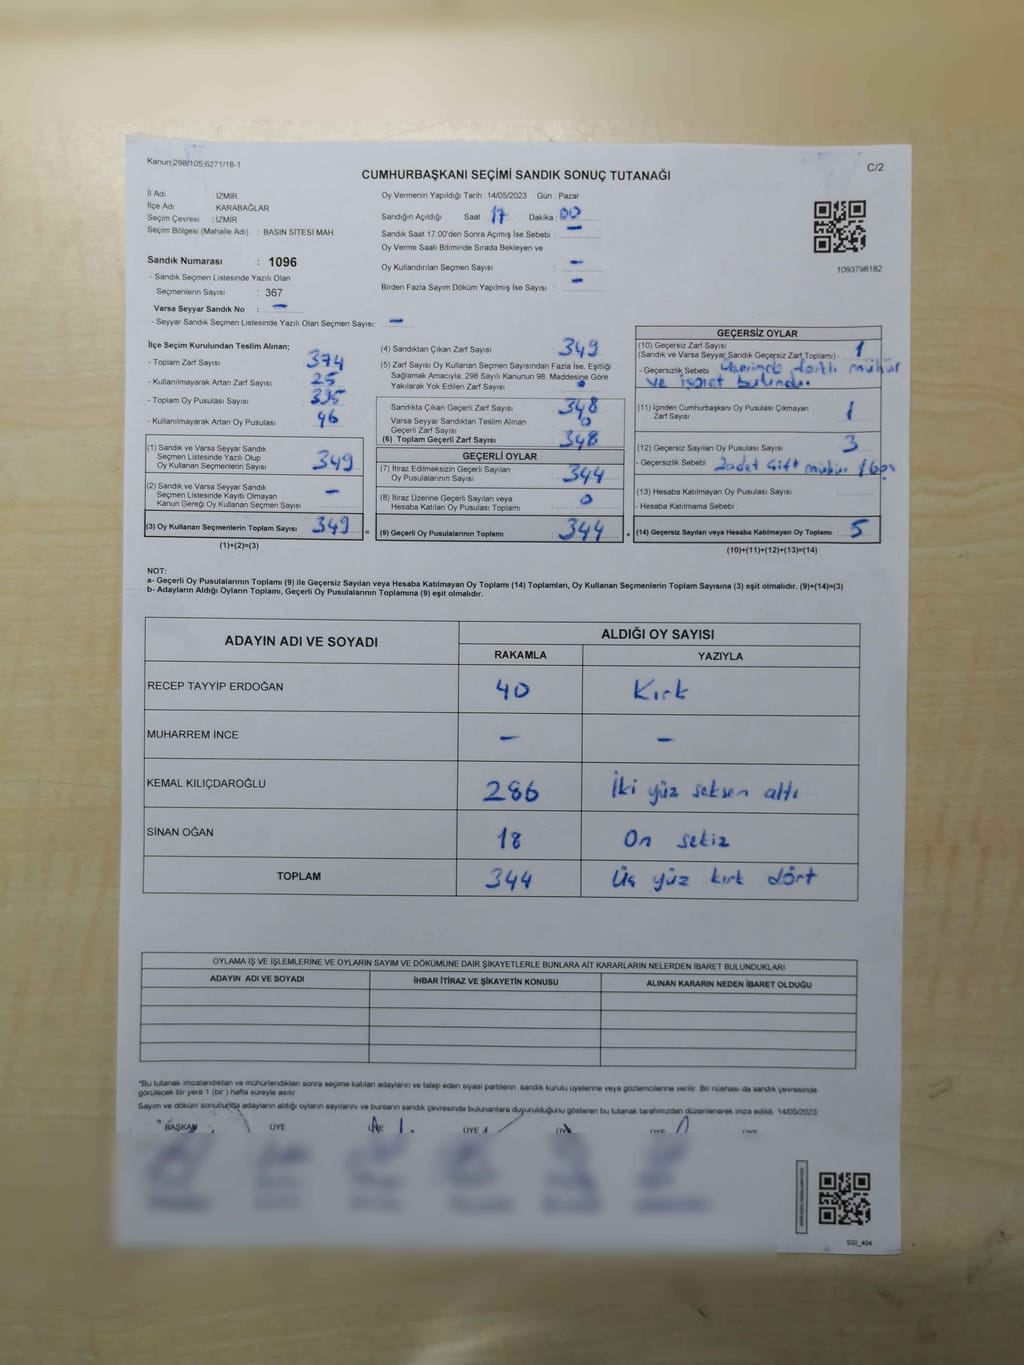 Kanun:298/105,6271/18-1
C/2
CUMHURBAŞKANI SEÇİMİ SANDIK SONUÇ TUTANAĞI
İl Adı : İZMİR
İlçe Adı : KARABAĞLAR
Seçim Çevresi : İZMİR
Seçim Bölgesi (Mahalle Adı) : BASIN SİTESİ MAH.
Sandık Numarası : 1096
- Sandık Seçmen Listesinde Yazılı Olan
Seçmenlerin Sayısı : 367
Varsa Seyyar Sandık No : -
- Seyyar Sandık Seçmen Listesinde Yazılı Olan Seçmen Sayısı: -
Oy Vermenin Yapıldığı Tarih : 14/05/2023 Gün : Pazar
Sandığın Açıldığı Saat 17 Dakika : 00
Sandık Saat 17:00'den Sonra Açımış İse Sebebi : -
Oy Verme Saati Bitiminde Sırada Bekleyen ve
Oy Kullandırılan Seçmen Sayısı : -
Birden Fazla Sayım Döküm Yapılmış İse Sayısı : -
1093798182
İlçe Seçim Kurulundan Teslim Alınan;
- Toplam Zarf Sayısı 374
- Kullanılmayarak Artan Zarf Sayısı 25
- Toplam Oy Pusulası Sayısı
- Kullanılmayarak Artan Oy Pusulası 46
(1) Sandık ve Varsa Seyyar Sandık
Seçmen Listesinde Yazılı Olup
Oy Kullanan Seçmenlerin Sayısı 349
(2) Sandık ve Varsa Seyyar Sandık
Seçmen Listesinde Kayıtlı Olmayan
Kanun Gereği Oy Kullanan Seçmen Sayısı -
(3) Oy Kullanan Seçmenlerin Toplam Sayısı 349 =
(1)+(2)=(3)
(4) Sandıktan Çıkan Zarf Sayısı 349
(5) Zarf Sayısı Oy Kullanan Seçmen Sayısından Fazla İse, Eşitliği
Sağlamak Amacıyla, 298 Sayılı Kanunun 98. Maddesine Göre
Yakılarak Yok Edilen Zarf Sayısı 0
Sandıkta Çıkan Geçerli Zarf Sayısı 348
Varsa Seyyar Sandıktan Teslim Alınan
Geçerli Zarf Sayısı 0
(6) Toplam Geçerli Zarf Sayısı 348
GEÇERLİ OYLAR
(7) İtiraz Edilmeksizin Geçerli Sayılan
Oy Pusulalarının Sayısı 344
(8) İtiraz Üzerine Geçerli Sayılan veya
Hesaba Katılan Oy Pusulası Toplamı 0
(9) Geçerli Oy Pusulalarının Toplamı 344 +
GEÇERSİZ OYLAR
(10) Geçersiz Zarf Sayısı
(Sandık ve Varsa Seyyar Sandık Geçersiz Zarf Toplamı) 1
- Geçersizlik Sebebi : Üzerinde farklı mühür
ve işaret bulundu.
(11) İçinden Cumhurbaşkanı Oy Pusulası Çıkmayan
Zarf Sayısı 1
(12) Geçersiz Sayılan Oy Pusulası Sayısı 3
- Geçersizlik Sebebi 2 adet çift mühür 1 boş
(13) Hesaba Katılmayan Oy Pusulası Sayısı
- Hesaba Katılmama Sebebi :
(14) Geçersiz Sayılan veya Hesaba Katılmayan Oy Toplamı 5
(10)+(11)+(12)+(13)=(14)
NOT:
a- Geçerli Oy Pusulalarının Toplamı (9) ile Geçersiz Sayılan veya Hesaba Katılmayan Oy Toplamı (14) Toplamları, Oy Kullanan Seçmenlerin Toplam Sayısına (3) eşit olmalıdır. (9)+(14)=(3)
b- Adayların Aldığı Oyların Toplamı, Geçerli Oy Pusulalarının Toplamına (9) eşit olmalıdır.
ADAYIN ADI VE SOYADI ALDIĞI OY SAYISI
RAKAMLA YAZIYLA
RECEP TAYYİP ERDOĞAN 40 Kırk
MUHARREM İNCE - -
KEMAL KILIÇDAROĞLU 286 İki yüz seksen altı
SİNAN OĞAN 18 On sekiz
TOPLAM 344 Üç yüz kırk dört
OYLAMA İŞ VE İŞLEMLERİNE VE OYLARIN SAYIM VE DÖKÜMÜNE DAİR ŞİKAYETLERLE BUNLARA AİT KARARLARIN NELERDEN İBARET BULUNDUKLARI
ADAYIN ADI VE SOYADI İHBAR İTİRAZ VE ŞİKAYETİN KONUSU ALINAN KARARIN NEDEN İBARET OLDUĞU
*Bu tutanak imzalandıktan ve mühürlendikten sonra seçime katılan adayların ve talep eden siyasi partilerin sandık kurulu üyelerine veya gözlemcilerine verilir. Bir nüshası da sandık çevresinde
görülecek bir yere 1 (bir) hafta süreyle asılır.
Sayım ve döküm sonucunda adayların aldığı oyların sayılarını ve bunların sandık çevresinde bulunanlara duyurulduğunu gösteren bu tutanak tarafımızdan düzenlenerek imza edildi. 14/05/2023
BAŞKAN ÜYE ÜYE ÜYE ÜYE ÜYE ÜYE
SSI_404